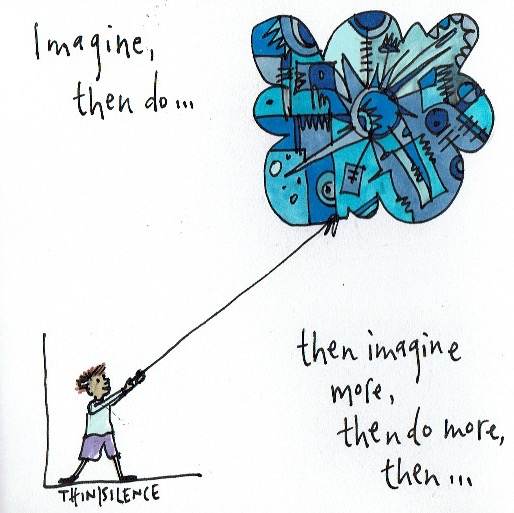 Imagine,
then do...
then imagine
more,
then do more,
then...
THIN|SILENCE